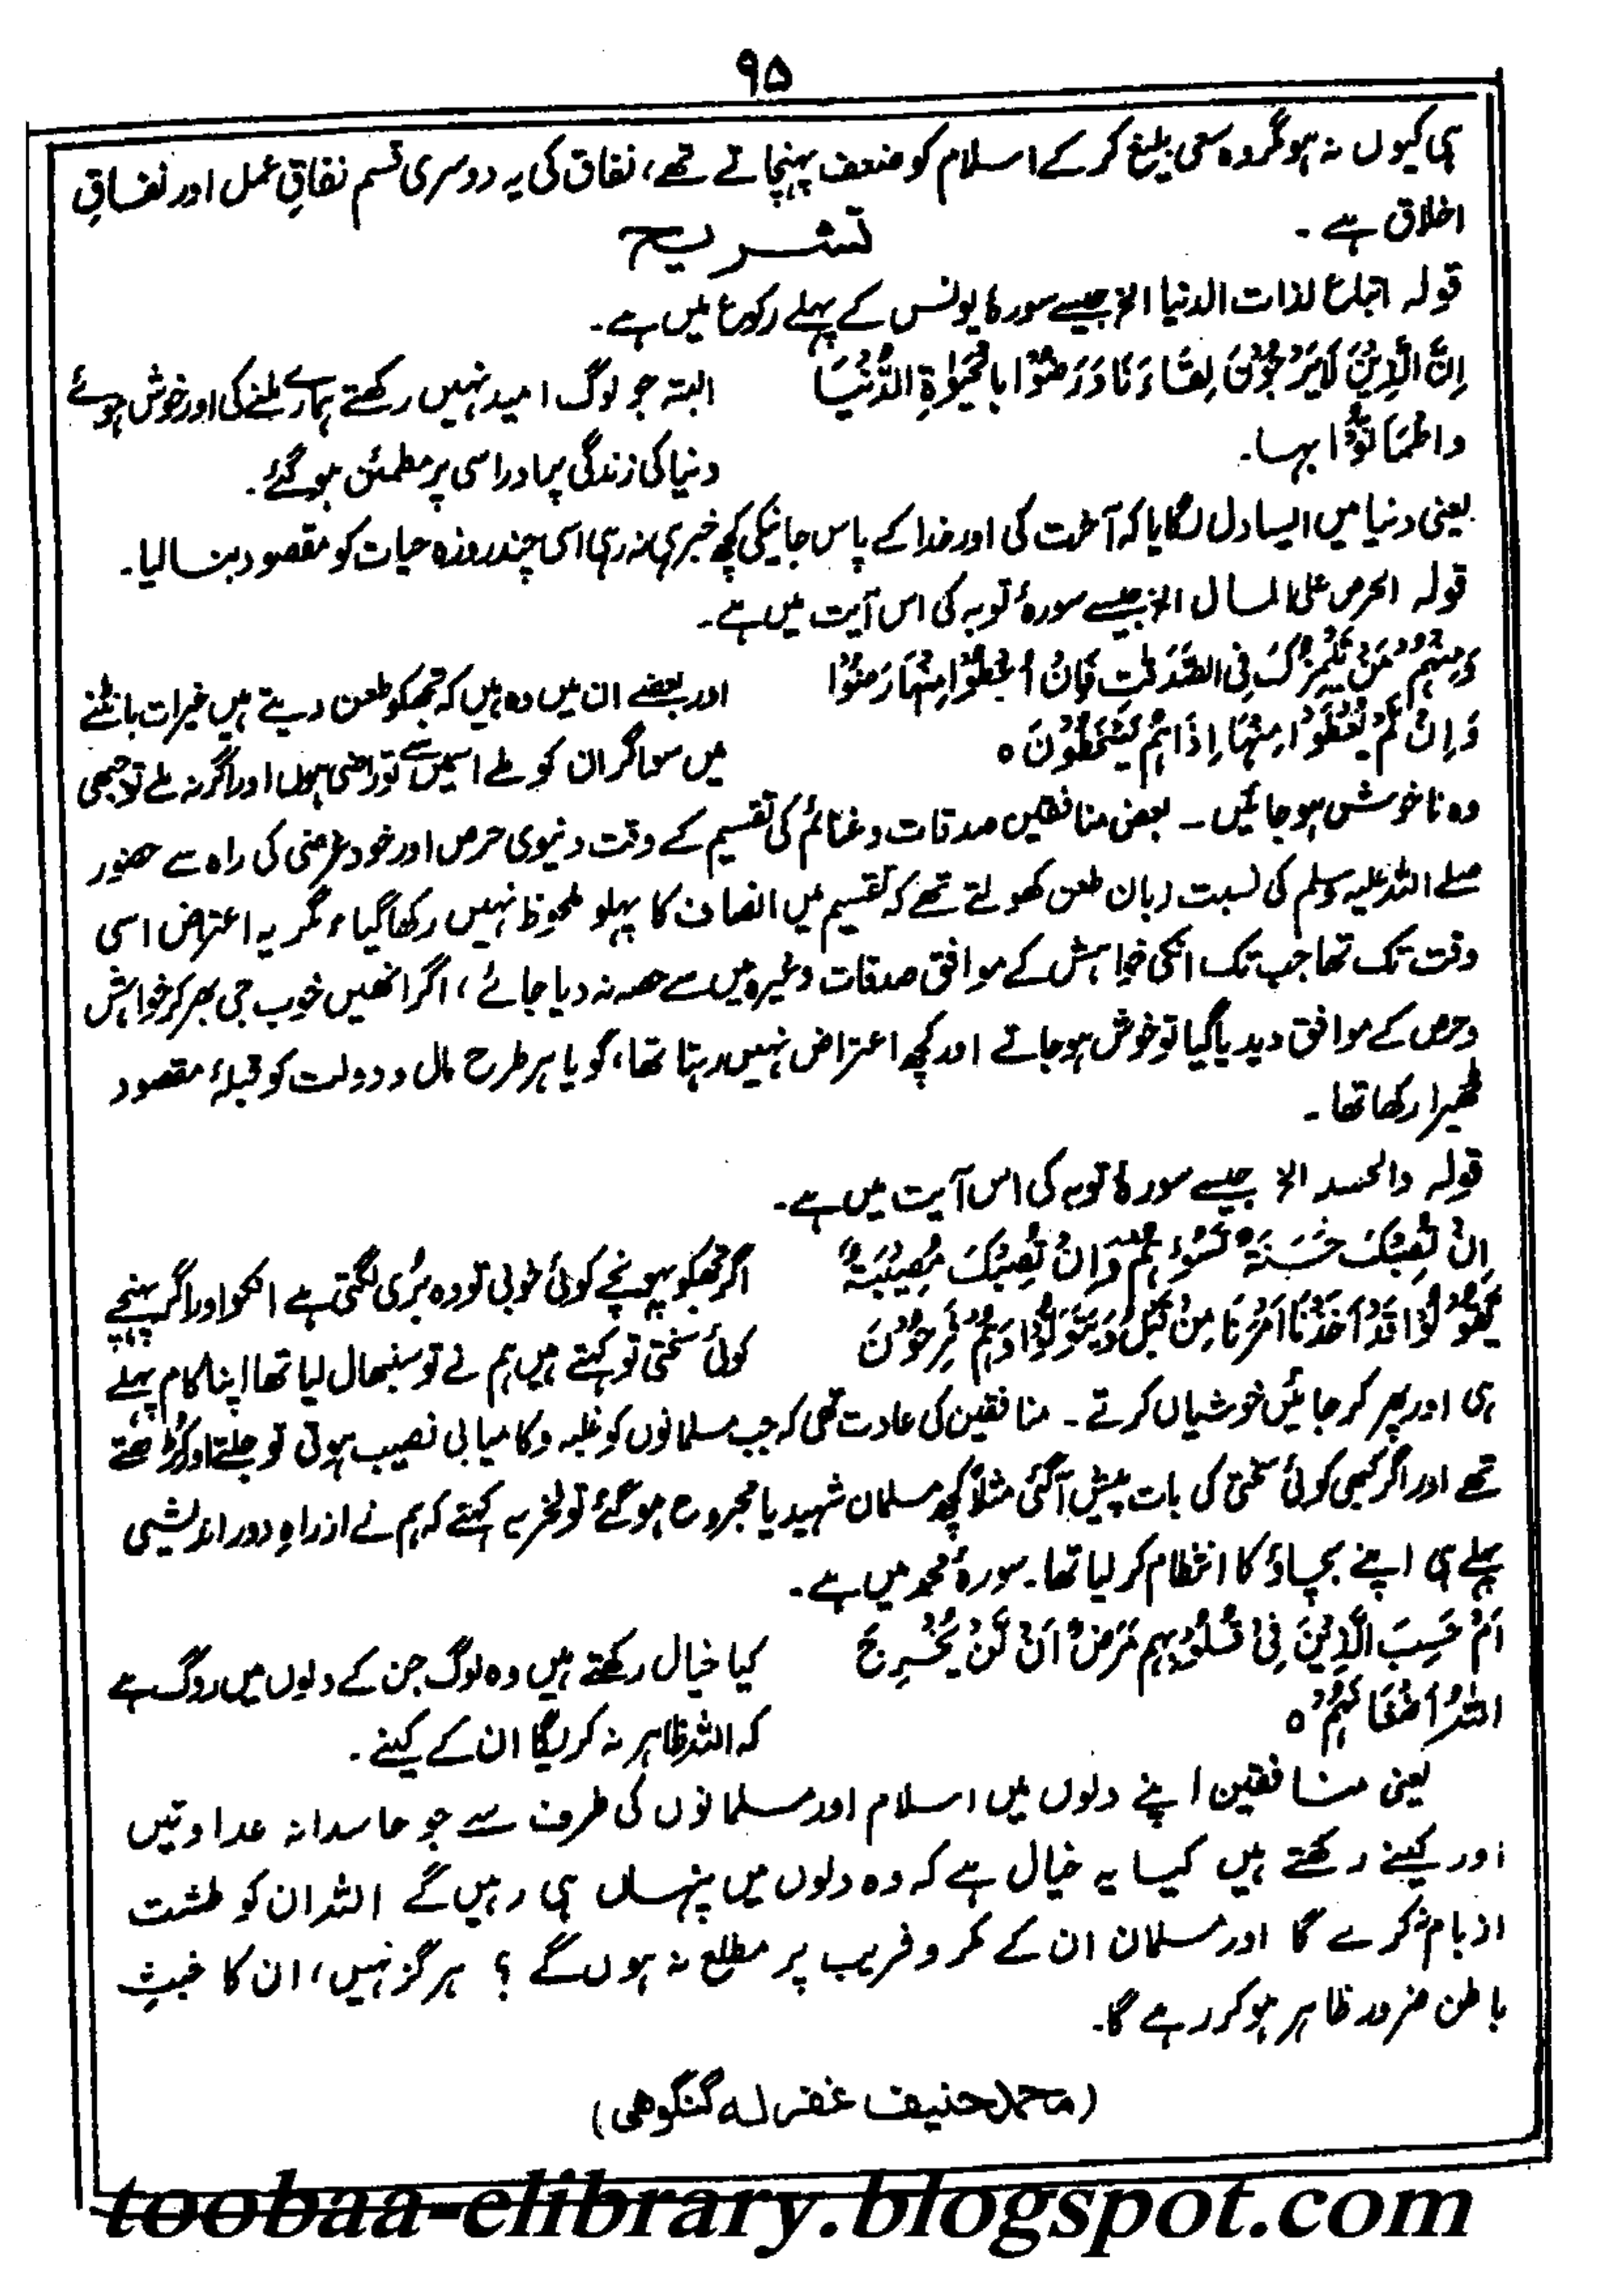 ۹۵
ہی کیوں نہ ہو مگر وہ سعی بلیغ کر کے اسلام کو ضعف پہنچاتے تھے، نفاق کی یہ دوسری قسم نفاقِ عمل اور نفاقِ
اخلاق ہے۔
تشریح
قولہ اتباع لذات الدنیا الخ جیسے سورۂ یونس کے پہلے رکوع میں ہے۔
اِنَّ الَّذِیْنَ لَا یَرْجُوْنَ لِقَآءَنَا وَرَضُوْا بِالْحَیٰوۃِ الدُّنْیَا
واطْمَاَنُّوْا بہا۔
البتہ جو لوگ امید نہیں رکھتے ہمارے ملنے کی اور خوش ہوئے
دنیا کی زندگی پر اور اسی پر مطمئن ہو گئے۔
یعنی دنیا میں ایسا دل لگایا کہ آخرت کی اور خدا کے پاس جانیکی کچھ خبر ہی نہ رہی اسی چند روزہ حیات کو مقصود بنا لیا۔
قولہ الحرص علی المال الخ جیسے سورۂ توبہ کی اس آیت میں ہے۔
وَمِنْہُمْ مَّنْ یَّلْمِزُکَ فِی الصَّدَقٰتِ فَاِنْ اُعْطُوْا مِنْہَا رَضُوْا
وَاِنْ لَّمْ یُعْطَوْا مِنْہَا اِذَا ہُمْ یَسْخَطُوْنَ ہ
اور بعضے ان میں وہ ہیں کہ تجھکو طعن دیتے ہیں خیرات بانٹنے
میں سو اگر ان کو ملے اسمیں سے تو راضی ہوں اور اگر نہ ملے تو جبھی
وہ ناخوش ہو جائیں ۔ بعض منافقین صدقات و غنائم کی تقسیم کے وقت دنیوی حرص اور خود غرضی کی راہ سے حضور
صلے اللہ علیہ وسلم کی نسبت زبان طعن کھولتے تھے کہ تقسیم میں انصاف کا پہلو ملحوظ نہیں رکھا گیا، مگر یہ اعتراض اسی
وقت تک تھا جب تک انکی خواہش کے موافق صدقات وغیرہ میں سے حصہ نہ دیا جائے، اگر انھیں خوب جی بھر کر خواہش
وحرص کے موافق دیدیا گیا تو خوش ہو جاتے اور کچھ اعتراض نہیں رہتا تھا، گویا ہر طرح مال و دولت کو قبلۂ مقصود
ٹھیرا رکھا تھا۔
قولہ والحسد الخ جیسے سورۂ توبہ کی اس آیت میں ہے۔
اِنْ تُصِبْکَ حَسَنَۃٌ تَسُؤْہُمْ وَاِنْ تُصِبْکَ مُصِیْبَۃٌ
یَّقُوْلُوْا قَدْ اَخَذْنَا اَمْرَنَا مِنْ قَبْلُ وَیَتَوَلَّوْا وَہُمْ فَرِحُوْنَ
اگر تجھکو پہونچے کوئی خوبی تو وہ بُری لگتی ہے انکو اور اگر پہنچے
کوئی سختی تو کہتے ہیں ہم نے تو سنبھال لیا تھا اپنا کام پہلے
ہی اور پھر کر جائیں خوشیاں کرتے۔ منافقین کی عادت تھی کہ جب مسلمانوں کو غلبہ و کامیابی نصیب ہوتی تو جلتے اور کڑھتے
تھے اور اگر کبھی کوئی سختی کی بات پیش آگئی مثلاً کچھ مسلمان شہید یا مجروح ہو گئے تو فخریہ کہتے کہ ہم نے ازراہِ دور اندیشی
پہلے ہی اپنے بچاؤ کا انتظام کر لیا تھا۔ سورۂ محمد میں ہے۔
اَمْ حَسِبَ الَّذِیْنَ فِیْ قُلُوْبِہِمْ مَرَضٌ اَنْ لَّنْ یُّخْرِجَ
اللّٰہُ اَضْغَانَہُمْ ہ
کیا خیال رکھتے ہیں وہ لوگ جن کے دلوں میں روگ ہے
کہ اللہ ظاہر نہ کریگا ان کے کینے۔
یعنی منافقین اپنے دلوں میں اسلام اور مسلمانوں کی طرف سے جو حاسدانہ عداوتیں
اور کینے رکھتے ہیں کیا یہ خیال ہے کہ وہ دلوں میں پنہاں ہی رہیں گے اللہ ان کو طشت
ازبام نہ کرے گا اور مسلمان ان کے مکر و فریب پر مطلع نہ ہوں گے ؟ ہرگز نہیں، ان کا خبثِ
باطن ضرور ظاہر ہو کر رہے گا۔
(محمد حنیف غفر لہ گنگوھی)
toobaa-elibrary.blogspot.com